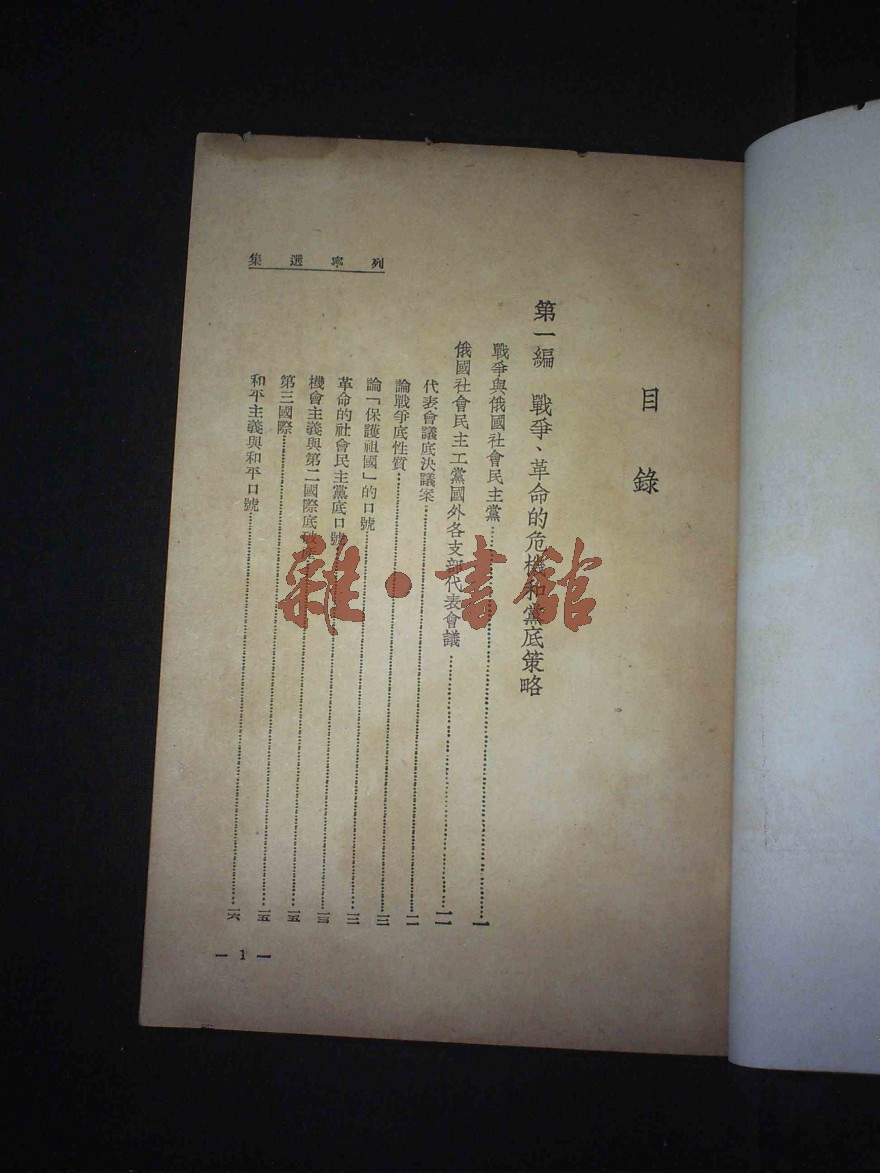 列寧選集
目錄
第一編 戰爭、革命的危機和黨底策略
戰爭與俄國社會民主黨……一
俄國社會民主工黨國外各支部代表會議……一一
代表會議底決議案……
論戰爭底性質……
論「保護祖國」的口號……
革命的社會民主黨底口號……一三
機會主義與第二國際底破產……一五
第三國際……一五
和平主義與和平口號……一六
— 1 —
雜·書館